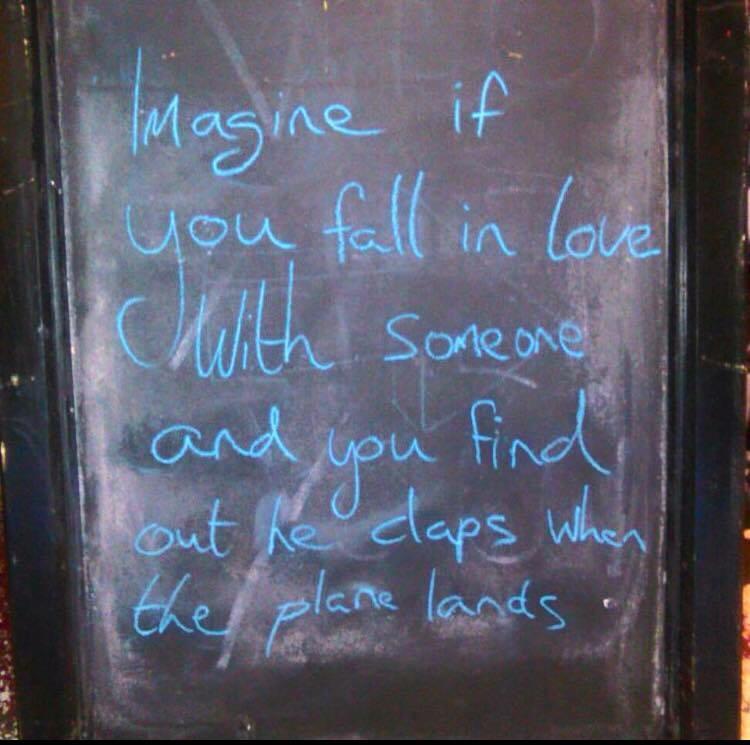 Imagine if
you fall in love
With someone
and you find
out he claps when
the plane lands.